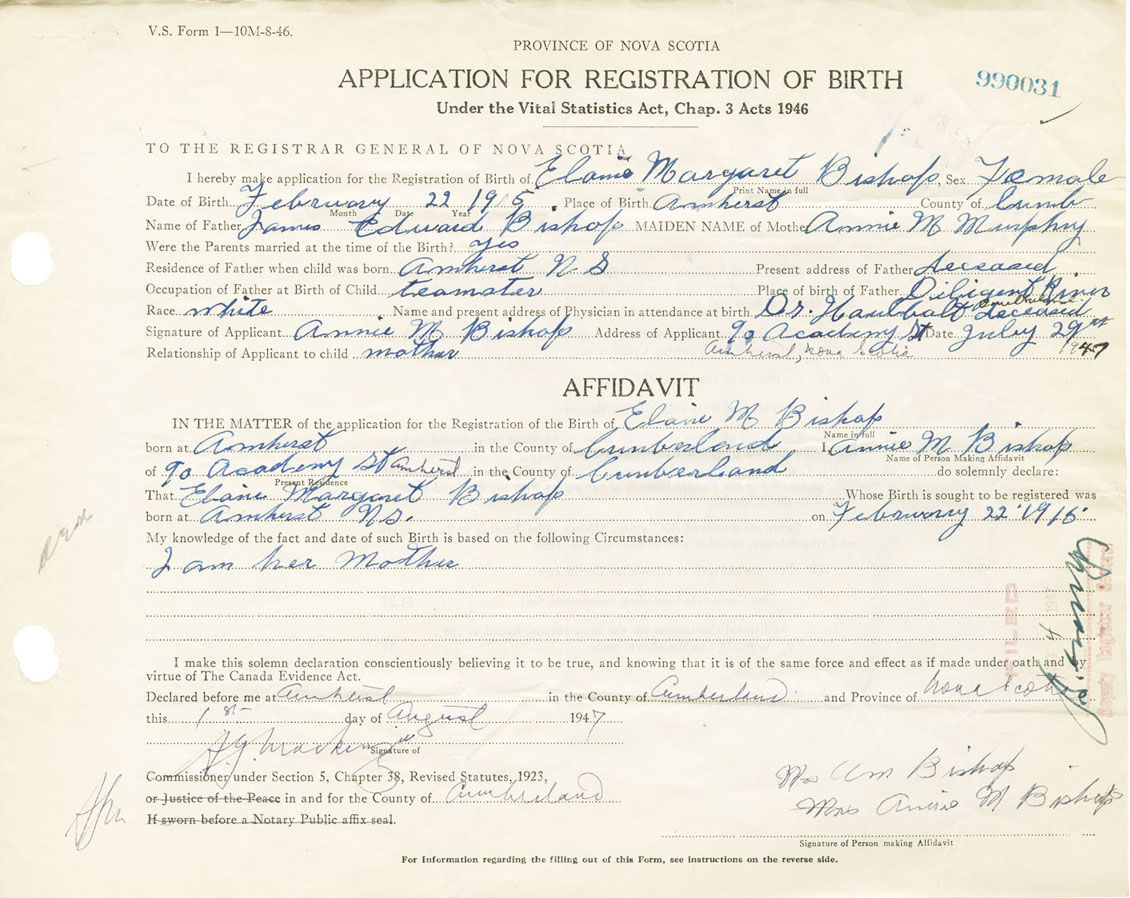 V.S. Form 1—10M-8-46.
PROVINCE OF NOVA SCOTIA
APPLICATION FOR REGISTRATION OF BIRTH
990031
Under the Vital Statistics Act, Chap. 3 Acts 1946
TO THE REGISTRAR GENERAL OF NOVA SCOTIA
I hereby make application for the Registration of Birth of Elaine Margaret Bishop, Sex Female
Print Name in full
Date of Birth February 22 1915 Place of Birth Amherst County of Cumb
Month Date Year
Name of Father James Edward Bishop MAIDEN NAME of Mother Annie M Murphy
Were the Parents married at the time of the Birth? yes
Residence of Father when child was born Amherst N S Present address of Father deceased
Occupation of Father at Birth of Child teamster Place of birth of Father Diligent River
Race white Name and present address of Physician in attendance at birth Dr. deceased
Signature of Applicant Annie M Bishop Address of Applicant 90 Academy St Date July 29
Relationship of Applicant to child mother Amherst, Nova Scotia 1947
AFFIDAVIT
IN THE MATTER of the application for the Registration of the Birth of Elaine M Bishop
Name in full
born at Amherst in the County of Cumberland I Annie M Bishop
Name of Person Making Affidavit
of 90 Academy St Amherst in the County of Cumberland do solemnly declare:
Present Residence
That Elaine Margaret Bishop Whose Birth is sought to be registered was
born at Amherst N.S. on February 22 1915
My knowledge of the fact and date of such Birth is based on the following Circumstances:
I am her Mother
FILED
1947
I make this solemn declaration conscientiously believing it to be true, and knowing that it is of the same force and effect as if made under oath and by
virtue of The Canada Evidence Act.
Declared before me at Amherst in the County of Cumberland and Province of Nova Scotia
this 1st day of August 1947
Signature of
Commissioner under Section 5, Chapter 38, Revised Statutes, 1923,
or Justice of the Peace in and for the County of Cumberland
If sworn before a Notary Public affix seal.
Mrs A M Bishop
Mrs Annie M Bishop
Signature of Person making Affidavit
For Information regarding the filling out of this Form, see instructions on the reverse side.